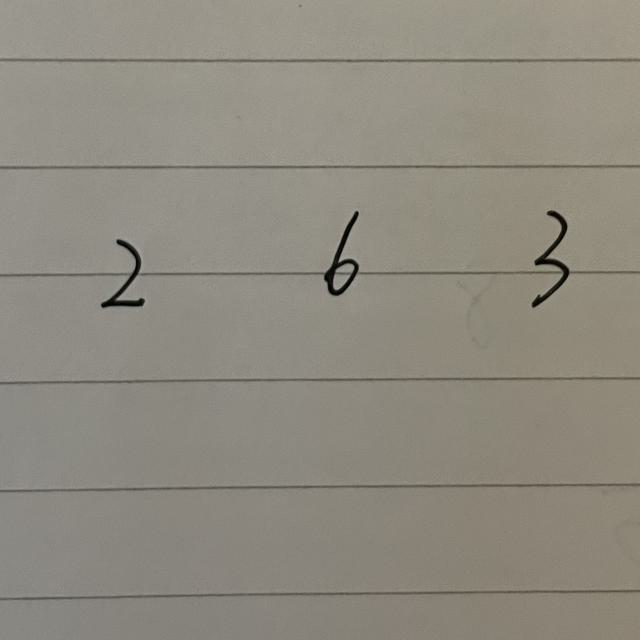 2 6 3